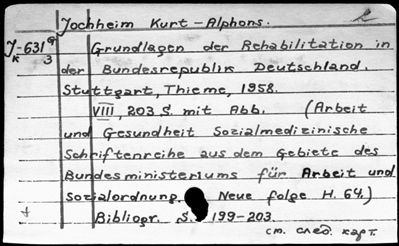 Jochheim Kurt-Alphons.
J-631 9
K 3
Grundlagen der Rehabilitation in
der Bundesrepublik Deutschland.
Stuttgart, Thieme, 1958.
VIII, 203 S. mit Abb. (Arbeit
und Gesundheit Sozialmedizinische
Schriftenreihe aus dem Gebiete des
Bundesministeriums für Arbeit und
Sozialordnung. Neue folge H. 64.)
Bibliogr. S. 199-203.
см. след. карт.